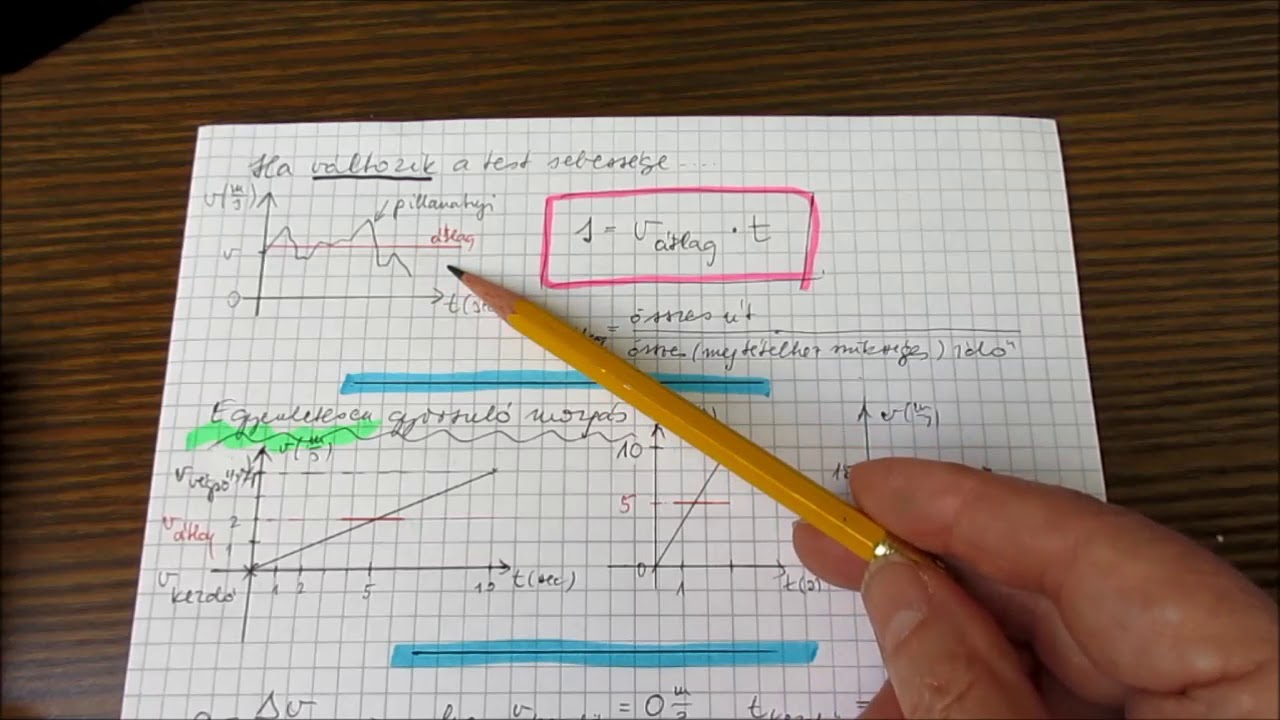 Ha változik a test sebessége....
v(m/s)
pillanatnyi
átlag
v
0
t(sec
s = v átlag · t
= összes út
össze (megtételhez szükséges) idő
Egyenletesen gyorsuló mozgás
v(m/s)
v végső
v átlag
2
1
v kezdő
1 2 5 10
t(sec)
10
5
0
1
t(s)
v(m/s)
Δv
v
= 0 m/s
t
=